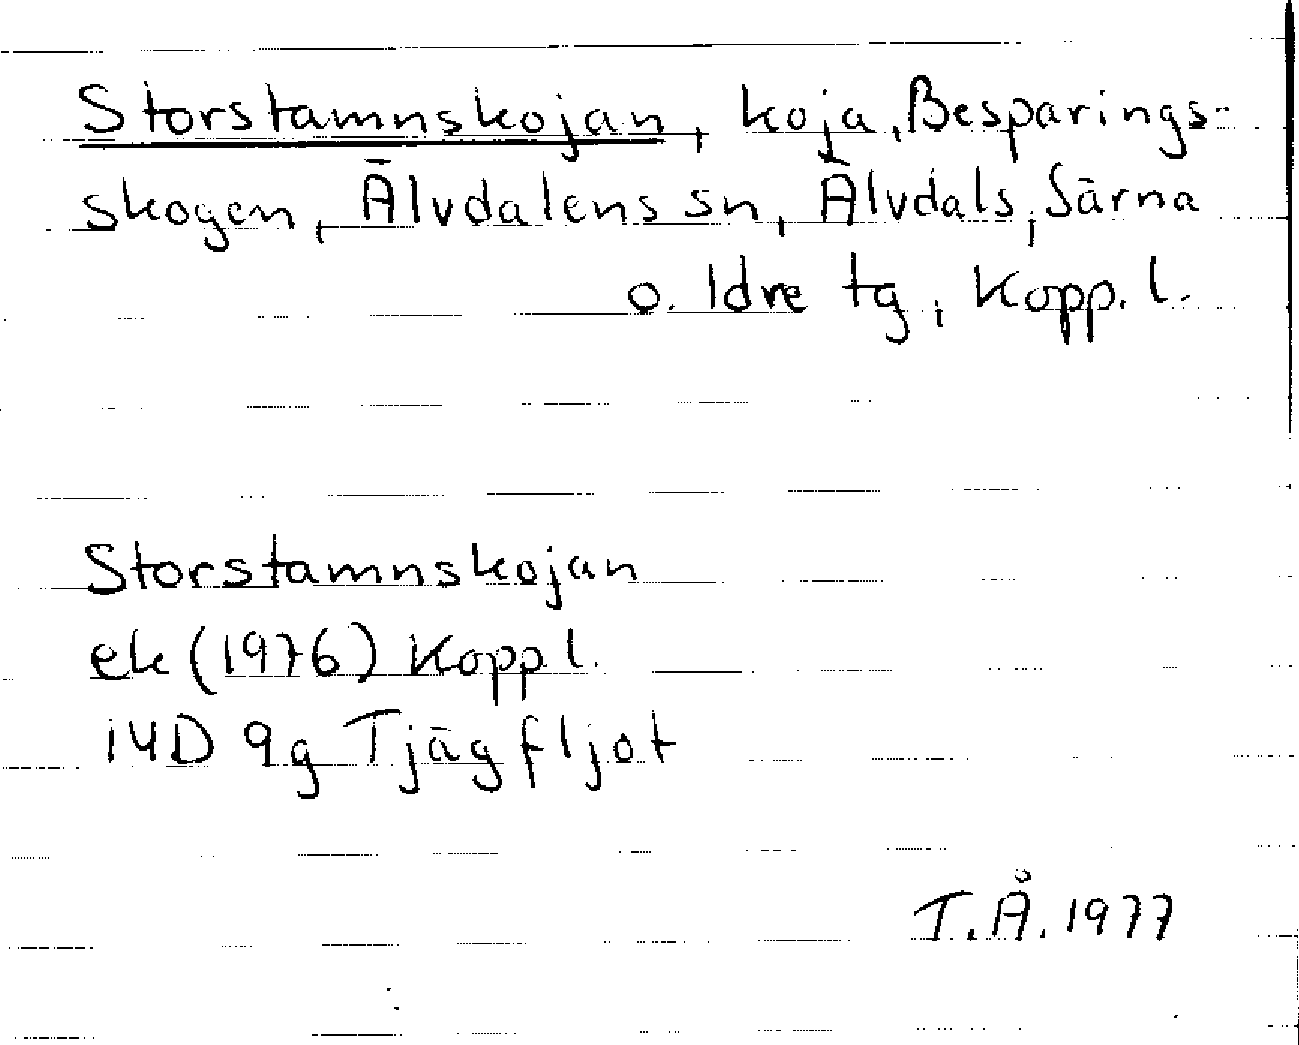 Storstamnskojan, koja, Besparings-
skogen, Älvdalens sn, Älvdals, Särna
o. Idre tg, Kopp. l.
Storstamnskojan
ek (1976) Kopp l.
14D 9g Tjägfljot
T.Å. 1977